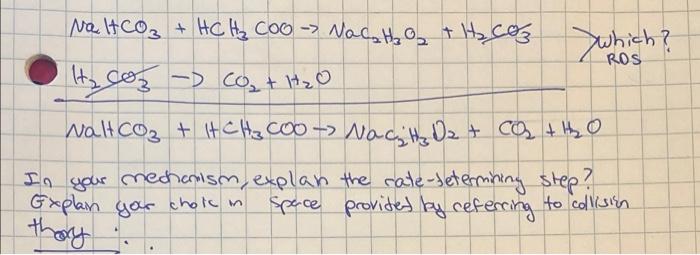 NaHCO3 + HCH3COO -> NaC2H3O2 + H2CO3
Which?
RDS
H2CO3 -> CO2 + H2O
NaHCO3 + HCH3COO -> NaC2H3O2 + CO2 + H2O
In your mechanism, explan the rate-determining step?
Explain your choic in space provided by referring to collision
thory :.